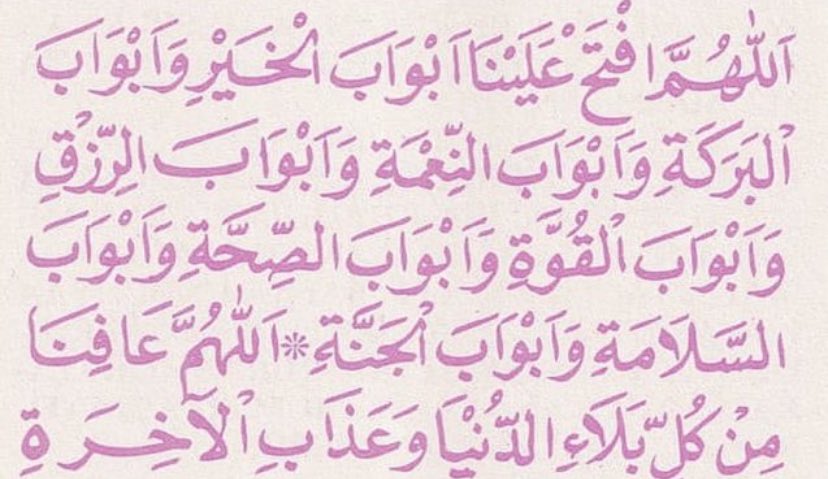 اَللّٰهُمَّ افْتَحْ عَلَيْنَا اَبْوَابَ الْخَيْرِ وَاَبْوَابَ
الْبَرَكَةِ وَاَبْوَابَ النِّعْمَةِ وَاَبْوَابَ الرِّزْقِ
وَاَبْوَابَ الْقُوَّةِ وَاَبْوَابَ الصِّحَّةِ وَاَبْوَابَ
السَّلَامَةِ وَاَبْوَابَ الْجَنَّةِ * اَللّٰهُمَّ عَافِنَا
مِنْ كُلِّ بَلَاءِ الدُّنْيَا وَعَذَابِ الْآخِرَةِ